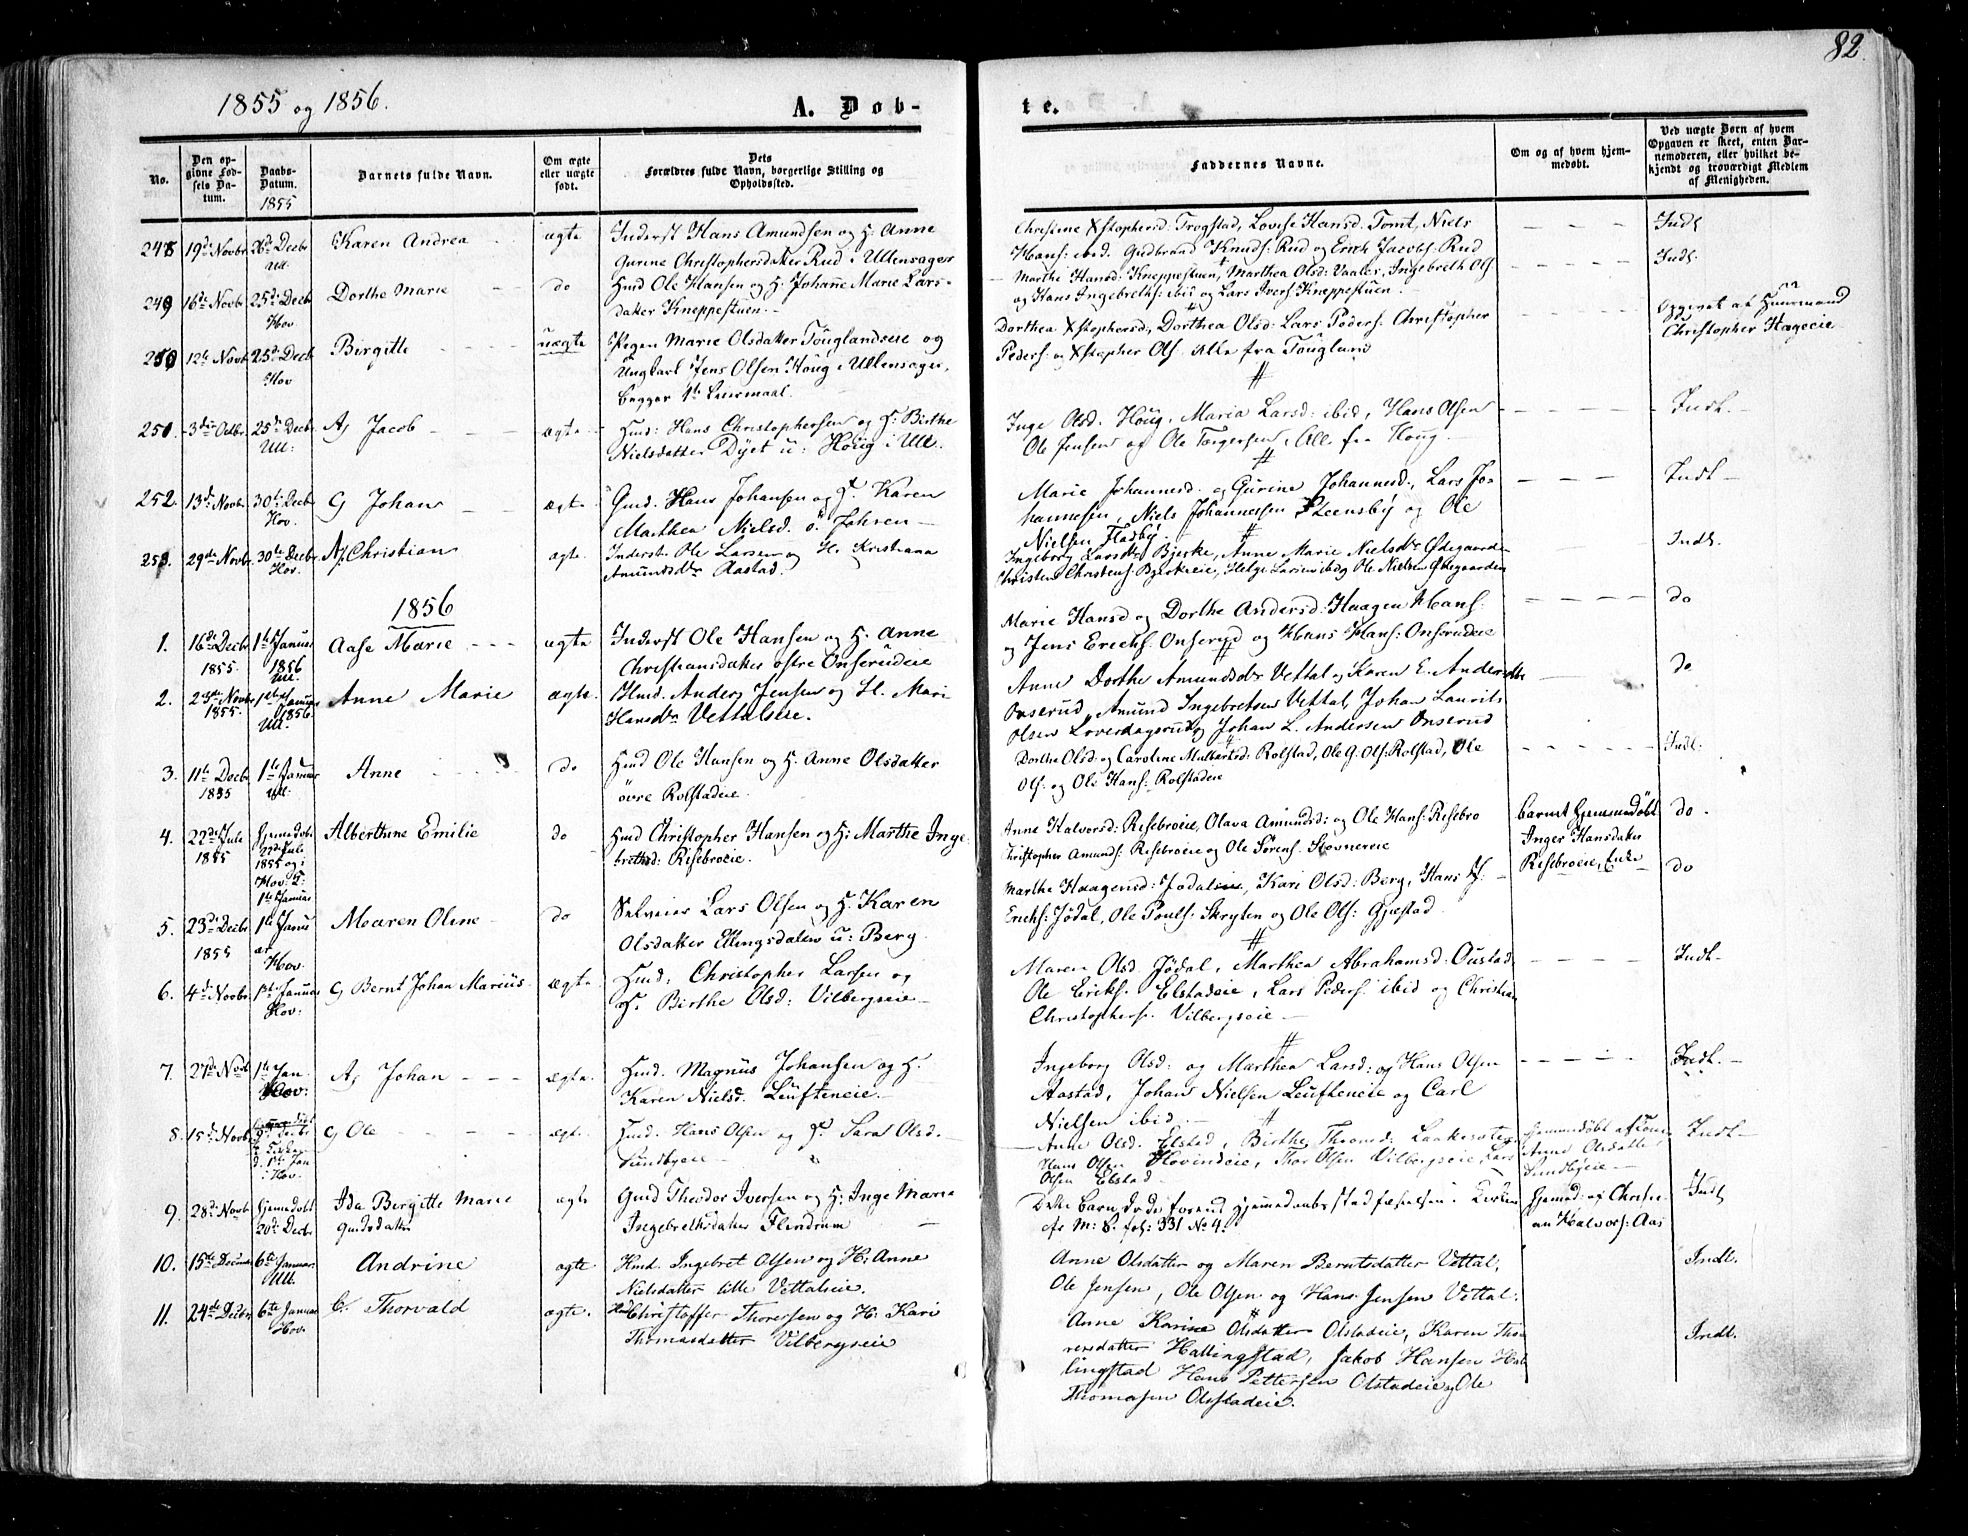 82.
1855 og 1856.
A. Døb-
te.
No.
Den opgivne Fødsels Datum.
Daabs-Datum.
1855
Barnets fulde Navn.
Om ægte eller uægte født.
Dets Forældres fulde Navn, borgerlige Stilling og Opholdssted.
Faddernes Navne.
Om og af hvem hjemmedøbt.
Ved uægte Børn af hvem Opgaven er skeet, enten Barnemoderen, eller hvilket bekjendt og troværdigt Medlem af Menigheden.
248 19de Novbr 26de Decbr Ull. Karen Andrea ægte Inderst Hans Amundsen og H. Anne
Gurine Christophersdatter Rud i Ullensager
Christine Xstophersd Trogstad, Lovise Hansd. Tomt, Niels
Hans: ibid. Gudbrand Knuds: Rud og Erich Jacobs: Rud
Indl
249 16de Novbr 25de Decbr Hov Dorthe Marie do Hmd Ole Hansen og H. Johanne Marie Lars-
datter Kneppestuen.
Marthe Hansd: Kneppestuen, Marthea Olsd: Vaaler, Ingebreth Ols
og Hans Ingebreths: ibid og Lars Ivers Kneppestuen.
Indl.
250 12te Novbr 25de Decbr Hov Birgitte uægte Pigen Marie Olsdatter Töuglandseie og
Ungkarl Jens Olsen Höug i Ullensager,
begges 1te Leiermaal.
Dorthea Xstophersd, Dorthea Olsd: Lars Peders: Christopher
Peders: og Xstopher Ols. Alle fra Töugland
Opgivet af Huusmand
Christopher Hageeie
251. 3die Octbr. 25de Decbr Ull: Aj Jacob ægte Hmd: Hans Christophersen og H: Birthe
Nielsdatter Dÿet u: Höüg i Ull.
Inge Olsd. Höug, Maria Larsd: ibid, Hans Olsen
Ole Jensen og Ole Torgersen, Alle fra Houg.
Indl.
252. 13de Novbr. 30te Decbr Hov. G Johan ægte Gmd. Hans Johansen og H. Karen
Marthea Nielsd. ö. Fahren
Marie Johannesd. og Gurine Johannesd., Lars Jo-
hannesen, Niels Johannesen Steensbÿ og Ole
Nielsen Fladbÿ.
Indl
253. 29de Novbr 30te Decbr Hov. Aj. Christian ægte. Inderst. Ole Larsen og H. Kristiana
Amundsdtr Aastad.
Ingeborg Larsdtr Bjerke, Anne Marie Nielsdtr Ødegaarden
Christen Christens. Bjerkeeie, Helge Larsen ibid og Ole Nielsen Ødegaarden
Indl.
1856
1. 16de Decbr 1855. 1te Januar 1856 Ull. Aase Marie ægte Inderst Ole Hansen og H. Anne
Christiansdatter östre Onserudeie
Marie Hansd og Dorthe Andersd: Haagen Hans:
og Jens Erichs. Onserud og Hans Hans: Onserudeie
do
2. 23de Novbr 1855. 1ste Januar 1856. Ull. Anne Marie ægte. Hmd. Anders Jensen og H. Mari
Hansdtr Vettaleie.
Anne Dorthe Amundsdtr Vettal og Karen E. Andersdtr
Onserud, Amund Ingebretsen Vettal, Johan Laurits
Olsen Loverdagsrud og Johan L. Andersen Onserud
do
3. 11te Decbr 1855 1te Januar Ull: Anne do Hmd Ole Hansen og H. Anne Olsdatter
övre Rolstadeie.
Dorthe Olsd: og Caroline Malbertsd: Rolstad, Ole G. Ols: Rolstad, Ole
Ols: og Ole Hans: Rolstadeie
Indl.
4. 22de Juli 1855 Hjemmedöbt 22de Juli 1855 og i Hov: K: 1te Januar Alberthine Emilie do Hmd Christopher Hansen og H: Marthe Inge-
brethsd: Risebroeie.
Anne Halvorsd: Risebroeie, Olava Amundsd: og Ole Hans: Risebro
Christopher Amunds: Risebroeie og Ole Sörens. Hovnereie
barnet hjemmedöbt
Inger Hansdatter
Risebroeie, Enke
do
5. 23de Decbr 1855 1te Januar Hov. Maren Oline do Selveier Lars Olsen og H. Karen
Olsdatter Ellingsdalen u: Berg
Marthe Haagensd: Jödalseie, Kari Olsd: Berg, Hans
Erichs: Jödal, Ole Pouls: Skryten og Ole Ols: Gjestad
do
6. 4de Novbr. 1ste Januar Hov: G Bernt Johan Marius ægte Hmd: Christopher Larsen og
H. Birthe Olsd: Vilbergseie
Maren Olsd. Jödal, Marthea Abrahamsd: Oustad
Ole Eriks: Elstadeie, Lars Peders: ibid og Christian
Christophers: Vilbergseie
Indl.
7. 27de Novb 1te Jan. Hov: Aj Johan ægte. Hmd. Magnus Johansen og H.
Karen Nielsd. Leufteneie.
Ingeborg Olsd: og Marthea Larsd: og Hans Olsen
Aastad, Johan Nielsen Leufteneie og Carl
Nielsen ibid.
Indl.
8. 15de Novbr. Decbr d. 1ste Jan i Hov. G Ole ægte. Hmd. Hans Olsen og H. Sara Olsd.
Sundbyeie
Anne Olsd. Elstad, Birthe Thronds. Laakesveten
Hans Olsen Hovindeie, Thor Olsen Vilbergseie, Lars
Olsen Elstad
Hjemmedöbt af Kone
Anne Olsdatter
Sundbÿeie
Indl
9. 28de Novbr Hjemmedöbt 20de Decbr Ida Bergitte Marie
Gudsdatter
ægte Gmd Theodor Iversen og H: Inge Marie
Ingebrethsdatter Flindrum
Dette Barn döde forend Hjemmedaabs stadfæstelsen i Kirken
cfr M: S. fol: 331 No 4.
Hjemmd: af Christi-
an Halvors: Aas
Indl
10. 15de Decembr 6te Januar. Ull. Andrine ægte Hmd. Ingebret Olsen og H: Anne
Nielsdatter lille Vettaleie.
Anne Olsdatter og Maren Berntsdatter Vettal,
Ole Jensen, Ole Olsen og Hans Jensen Vettal.
Indl.
11. 24de Decbr 6te Januar Hov. C. Thorvald ægte. Hmd Christoffer Thoresen og H: Kari
Thomasdatter Vilbergseie
Anne Karine Olsdatter Olstadeie, Karen Tho-
resdatter Hallingstad, Jakob Hansen Hal-
lingstad Hans Pettersen Olstadeie og Ole
Thomasen Olstadeie.
Indl.